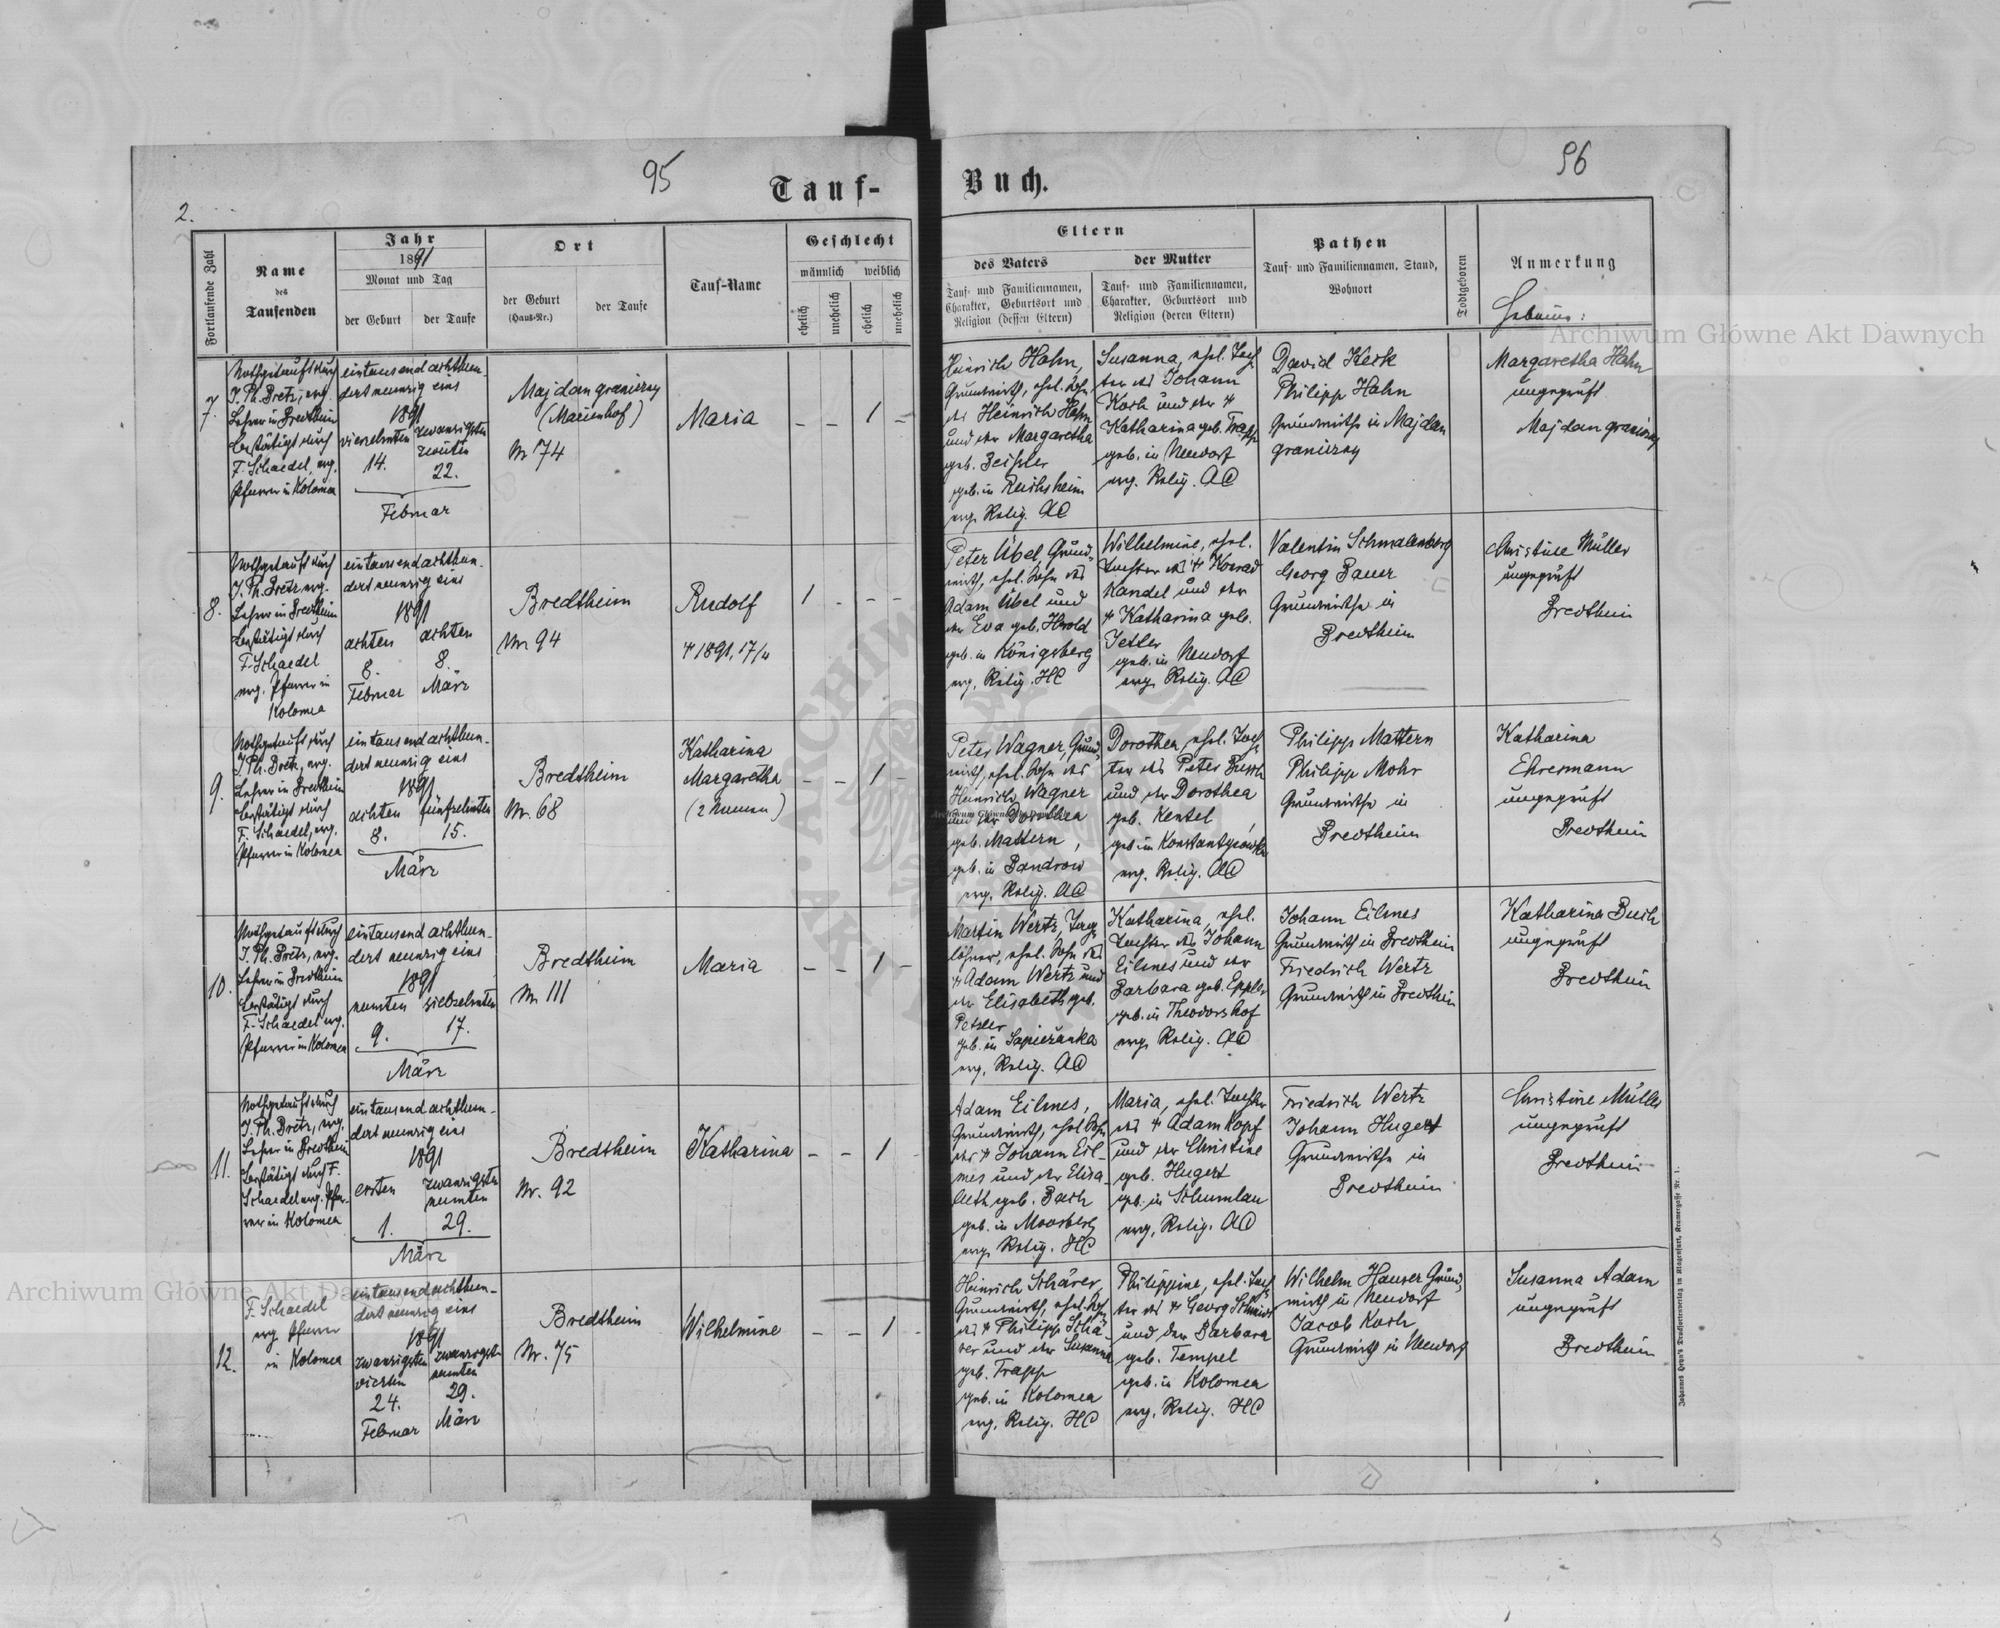 95
96
Tauf-
Buch.
2.
Fortlaufende Zahl
Name
des
Taufenden
Jahr
1891
Monat und Tag
der Geburt
der Taufe
Ort
der Geburt
(Haus-Nr.)
der Taufe
Tauf-Name
Geschlecht
männlich
weiblich
ehelich
unehelich
ehelich
unehelich
Eltern
des Vaters
der Mutter
Tauf- und Familiennamen,
Charakter, Geburtsort und
Religion (dessen Eltern)
Tauf- und Familiennamen,
Charakter, Geburtsort und
Religion (deren Eltern)
Pathen
Tauf- und Familiennamen, Stand,
Wohnort
Todtgeboren
Anmerkung
Hebamme:
Archiwum Główne Akt Dawnych
7.
Nothgetauft durch
J. Ph. Bretz, evg.
Lehrer in Bredtheim
bestätigt durch
F. Schaedel, evg.
Pfarrer in Kolomea
eintausend achthun-
dert neunzig eins
1891
vierzehnten
14.
zwanzigsten
zweiten
22.
Februar
Majdan graniczny
(Marienhof)
Nr 74
Maria
– – 1 –
Heinrich Hahn,
Grundwirth, ehel. Sohn
des Heinrich Hahn
und der Margaretha
geb. Zeissler
geb. in Reichsheim
evg. Relig. AC
Susanna, ehel. Toch-
ter des Johann
Koch und der +
Katharina geb. Trapp
geb. in Neudorf
evg. Relig. AC
David Kerk
Philipp Hahn
Grundwirthe in Majdan
graniczny
Margaretha Hahn
ungeprüft
Majdan graniczny
8.
Nothgetauft durch
J. Ph. Bretz evg.
Lehrer in Bredtheim
bestätigt durch
F. Schaedel
evg. Pfarrer in
Kolomea
eintausend achthun-
dert neunzig eins
1891
achten
8.
Februar
achten
8.
März
Bredtheim
Nr 94
Rudolf
+ 1891, 17/4
1 – – –
Peter Übel, Grund-
wirth, ehel. Sohn des
Adam Übel und
der Eva geb. Herold
geb. in Königsberg
evg. Relig. HC
Wilhelmine, ehel.
Tochter des + Konrad
Kandel und der
+ Katharina geb.
geb. in Neudorf
evg. Relig. AC
Valentin Schmalenberg
Georg Bauer
Grundwirthe in
Bredtheim
Christine Müller
ungeprüft
Bredtheim
9.
Nothgetauft durch
J. Ph. Bretz, evg.
Lehrer in Bredtheim
bestätigt durch
F. Schaedel, evg.
Pfarrer in Kolomea
eintausend achthun-
dert neunzig eins
1891
achten
8.
fünfzehnten
15.
März
Bredtheim
Nr. 68
Katharina
Margaretha
(2 Namen)
– – 1 –
Peter Wagner, Grund-
wirth, ehel. Sohn des
Heinrich Wagner
und der Dorothea
geb. Mattern,
geb. in Bandrow
evg. Relig. AC
Archiwum Główne Akt Dawnych
Dorothea, ehel. Toch-
ter des Peter Busch
und der Dorothea
geb. Kentel,
geb. in Konstantynówka
evg. Relig. AC
Philipp Mattern
Philipp Mohr
Grundwirthe in
Bredtheim
Katharina
Ehresmann
ungeprüft
Bredtheim
10.
Nothgetauft durch
J. Ph. Bretz, evg.
Lehrer in Bredtheim
bestätigt durch
F. Schaedel evg.
Pfarrer in Kolomea
eintausend achthun-
dert neunzig eins
1891
neunten
9.
siebzehnten
17.
März
Bredtheim
Nr 111
Maria
– – 1 –
Martin Wertz, Tag-
löhner, ehel. Sohn des
+ Adam Wertz und
der Elisabeth geb.
Petzler
geb. in Sapieżanka
evg. Relig. AC
Katharina, ehel.
Tochter des Johann
Eilmes und der
Barbara geb. Eppler
geb. in Theodorshof
evg. Relig. AC
Johann Eilmes
Grundwirth in Bredtheim
Friedrich Wertz
Grundwirth in Bredtheim
Katharina Busch
ungeprüft
Bredtheim
11.
Nothgetauft durch
J. Ph. Bretz, evg.
Lehrer in Bredtheim
bestätigt durch F.
Schaedel evg. Pfar-
rer in Kolomea
eintausend achthun-
dert neunzig eins
1891
ersten
1.
zwanzigsten
neunten
29.
März
Bredtheim
Nr. 92
Katharina
– – 1 –
Adam Eilmes,
Grundwirth, ehel. Sohn
des + Johann Eil-
mes und der Elisa-
beth geb. Bach
geb. in Moosberg
evg. Relig. HC
Maria, ehel. Tochter
des + Adam Kopf
und der Christine
geb. Hugert
geb. in Schumlau
evg. Relig. AC
Friedrich Wertz
Johann Hugert
Grundwirthe in
Bredtheim
Christine Müller
ungeprüft
Bredtheim
12.
F. Schaedel
evg. Pfarrer
in Kolomea
eintausend achthun-
dert neunzig eins
1891
zwanzigsten
vierten
24.
Februar
zwanzigsten
neunten
29.
März
Bredtheim
Nr. 75
Wilhelmine
– – 1 –
Heinrich Schärer,
Grundwirth, ehel. Sohn
des + Philipp Schä-
rer und der Susanna
geb. Trapp
geb. in Kolomea
evg. Relig. HC
Philippine, ehel. Toch-
ter des + Georg Schmidt
und der Barbara
geb. Tempel
geb. in Kolomea
evg. Relig. HC
Wilhelm Hauser Grund-
wirth in Neudorf
Jacob Koch
Grundwirth in Neudorf
Susanna Adam
ungeprüft
Bredtheim
Archiwum Główne Akt Dawnych
Johannes Heyn's Drucksortenverlag in Klagenfurt, Kramergasse Nr. 1.